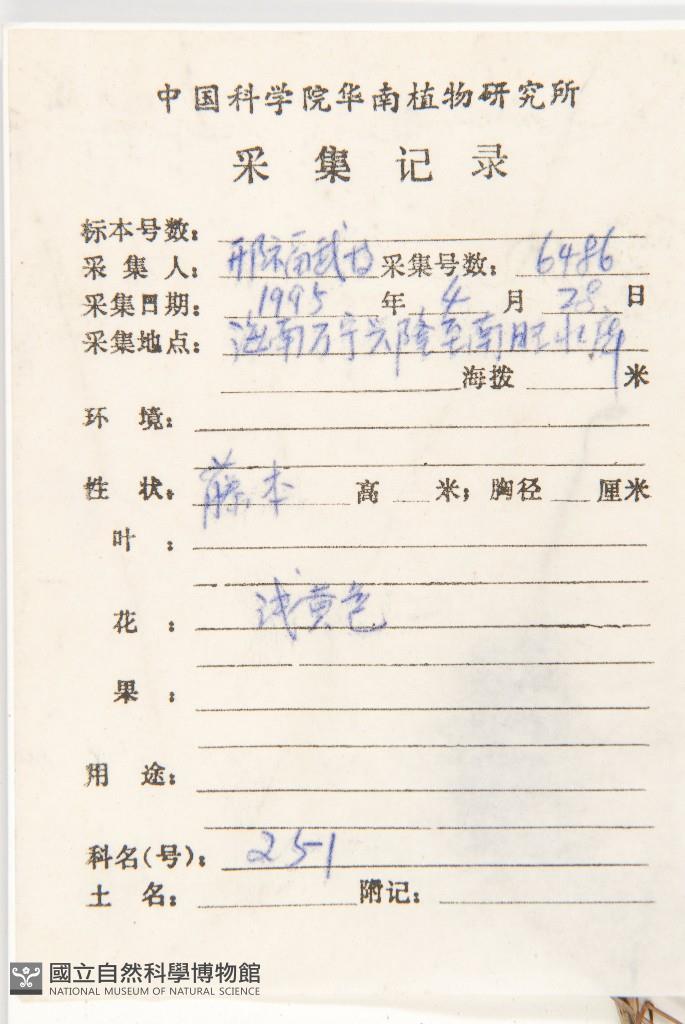 中国科学院华南植物研究所
采集记录
标本号数:
采集人: 邢福武 采集号数: 6486
采集日期: 1995 年 4 月 28 日
采集地点: 海南万宁兴隆至南旺水库
海拨 米
环境:
性状: 藤本 高 米; 胸径 厘米
叶:
花: 浅黄色
果:
用途:
科名(号): 251
土名: 附记:
國立自然科學博物館
NATIONAL MUSEUM OF NATURAL SCIENCE